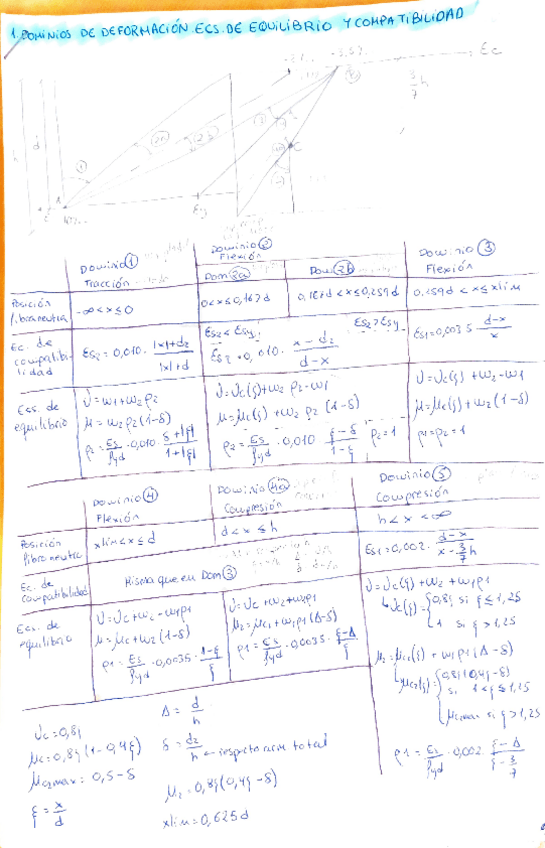 1. DOMINIOS DE DEFORMACIÓN. ECS. DE EQUILIBRIO Y COMPATIBILIDAD
-3,5‰
Ec
3/7 h
Ey
Dominio 1
Tracción
Dominio 2
Flexión
Dom 2a
Dom 2b
Dominio 3
Flexión
Posición fibra neutra
-∞<x≤0
0<x≤0,167d
0,167d<x≤0,259d
0,259d<x≤xlim
Ec. de compatibilidad
Es2 = 0,010 · (|x|+d2)/(|x|+d)
Es2 ≤ Esy
Es2 = 0,010 · (x-d2)/(d-x)
Es2 > Esy
Es1 = 0,0035 · (d-x)/x
Ecs. de equilibrio
υ = ω1+ω2ρ2
μ = ω2ρ2(1-δ)
ρ2 = Es/fyd · 0,010 · (δ+|ξ|)/(1+|ξ|)
υ = υc(ξ)+ω2ρ2-ω1
μ = μc(ξ)+ω2ρ2(1-δ)
ρ2 = Es/fyd · 0,010 · (ξ-δ)/(1-ξ)
ρ2=1
υ = υc(ξ)+ω2-ω1
μ = μc(ξ)+ω2(1-δ)
ρ1=ρ2=1
Dominio 4
Flexión
Dominio 4a
Compresión
Dominio 5
Compresión
Posición fibra neutra
xlim<x≤d
d<x≤h
h<x<∞
Ec. de compatibilidad
Misma que en Dom 3
Es1 = 0,002 · (d-x)/(x-3/7 h)
Ecs. de equilibrio
υ = υc+ω2-ω1ρ1
μ = μc+ω2(1-δ)
ρ1 = Es/fyd · 0,0035 · (1-ξ)/ξ
υ = υc+ω2+ω1ρ1
μ2 = μc+ω1ρ1(Δ-δ)
ρ1 = Es/fyd · 0,0035 · (ξ-Δ)/ξ
υ = υc(ξ)+ω2+ω1ρ1
υc(ξ) = { 0,8ξ si ξ≤1,25
1 si ξ>1,25
μ2 = μc2(ξ)+ω1ρ1(Δ-δ)
μc2(ξ): { 0,8ξ(0,4ξ-δ)
si 1<ξ≤1,25
μcmax si ξ>1,25
ρ1 = Es/fyd · 0,002 · (ξ-Δ)/(ξ-3/7)
υc=0,8ξ
μc=0,8ξ(1-0,4ξ)
μc2max=0,5-δ
ξ = x/d
Δ = d/h
δ = d2/h ← respecto
total
μ2=0,8ξ(0,4ξ-δ)
xlim=0,625d